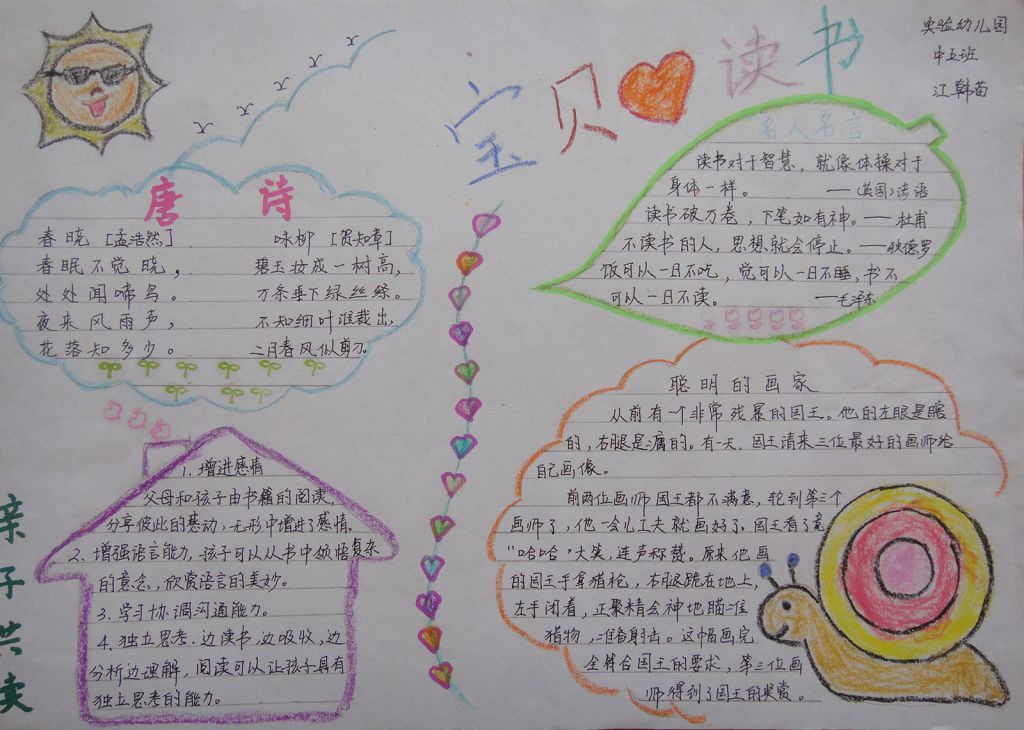 实验幼儿园
中五班
江韩苗
宝贝读书
唐 诗
春晓 [孟浩然]
春眠不觉晓，
处处闻啼鸟。
夜来风雨声，
花落知多少。
咏柳 [贺知章]
碧玉妆成一树高，
万条垂下绿丝绦。
不知细叶谁裁出，
二月春风似剪刀。
名人名言
读书对于智慧，就像体操对于
身体一样。 ——(英国)谚语
读书破万卷，下笔如有神。——杜甫
不读书的人，思想就会停止。——狄德罗
饭可以一日不吃，觉可以一日不睡，书不
可以一日不读。 ——毛泽东
亲子共读
1、增进感情
父母和孩子由书籍的阅读，
分享彼此的感动，无形中增进了感情。
2、增强语言能力，孩子可以从书中领悟复杂
的意念，欣赏语言的美妙。
3、学习协调沟通能力。
4、独立思考，边读书，边吸收，边
分析边理解，阅读可以让孩子具有
独立思考的能力。
聪明的画家
从前有一个非常残暴的国王。他的左眼是瞎
的，右腿是瘸的。有一天，国王请来三位最好的画师给
自己画像。
前两位画师国王都不满意，轮到第三个
画师了，他一会儿工夫就画好了。国王看了竟
“哈哈”大笑，连声称赞。原来他画
的国王手拿猎枪，右腿跪在地上，
左手闭着，正聚精会神地瞄准
猎物，准备射击。这幅画完
全符合国王的要求，第三位画
师得到了国王的奖赏。